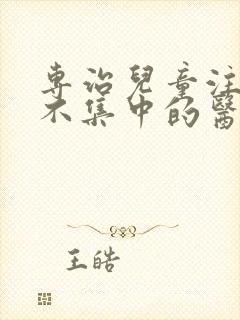 專治兒童注
不集中的醫
王皓